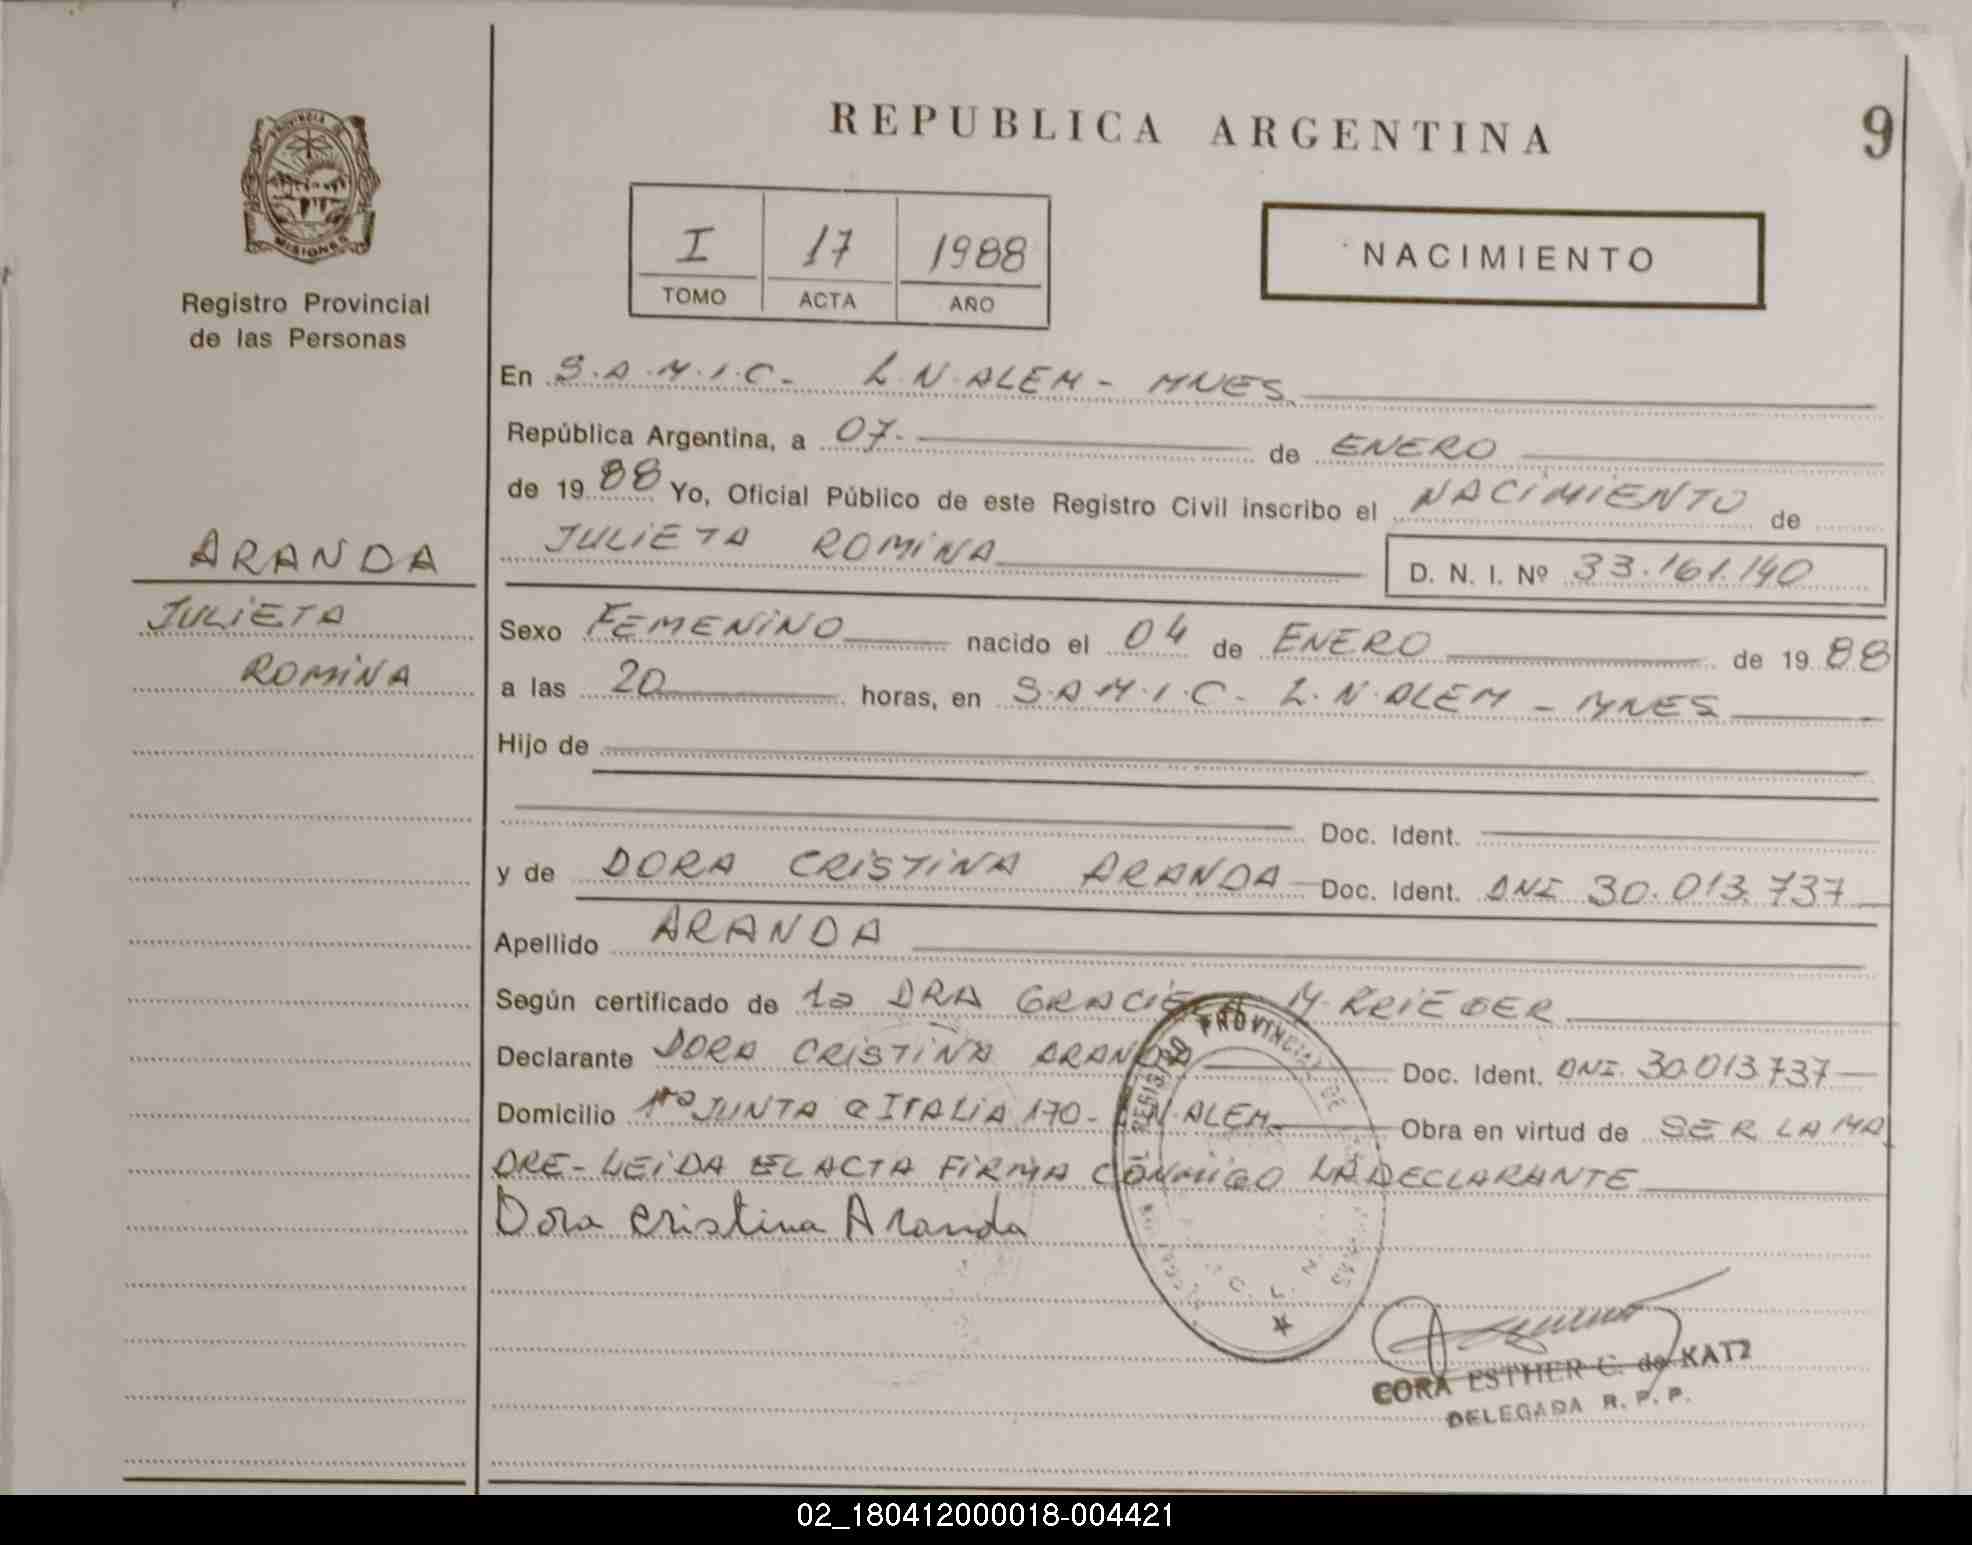 REPUBLICA ARGENTINA
9
PROVINCIA DE
MISIONES
Registro Provincial
de las Personas
I 17 1988
TOMO ACTA AÑO
NACIMIENTO
En S.A.M.I.C- L.N.ALEM- MNES.
República Argentina, a 07- de ENERO
de 1988 Yo, Oficial Público de este Registro Civil inscribo el NACIMIENTO de
JULIETA ROMINA D. N. I. Nº 33.161.140
ARANDA
JULIETA
ROMINA
Sexo FEMENINO nacido el 04 de ENERO de 1988
a las 20 horas, en S.A.M.I.C- L.N.ALEM - MNES
Hijo de
Doc. Ident.
y de DORA CRISTINA ARANDA Doc. Ident. DNI 30.013.737
Apellido ARANDA
Según certificado de la DRA GRACIELA M. KRIEGER
Declarante DORA CRISTINA ARANDA Doc. Ident. DNI 30.013.737
Domicilio 1ra JUNTA e ITALIA 170- L.N.ALEM- Obra en virtud de SER LA MA
DRE- LEIDA EL ACTA FIRMA CONMIGO LA DECLARANTE
Dora Cristina Aranda
REGISTRO PROVINCIAL DE
CORA ESTHER C. de KATZ
DELEGADA R. P. P.
02_180412000018-004421